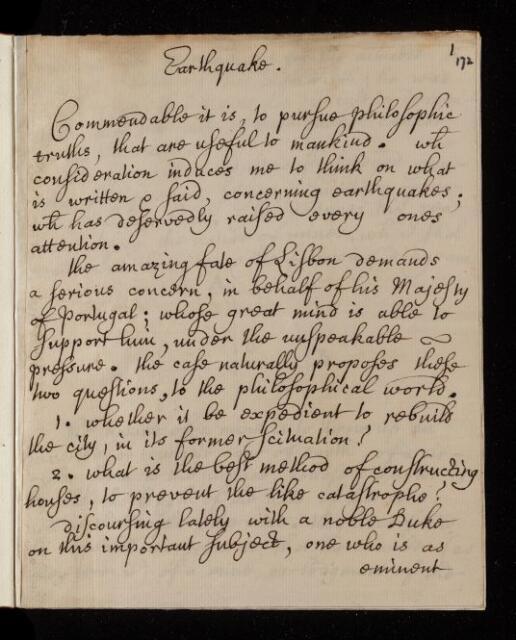 1
172
Earthquake.
Commendable it is, to pursue philosophic
truths, that are useful to mankind. wh
consideration induces me to think on what
is written & said, concerning earthquakes;
wh has deservedly raised every ones
attention.
the amazing fate of Lisbon demands
a serious concern, in behalf of his Majesty
of Portugal: whose great mind is able to
support him, under the unspeakable ~
pressure. the case naturally proposes these
two questions, to the philosophical world.
1. whether it be expedient to rebuild
the city, in its former scituation?
2. what is the best method of constructing
houses, to prevent the like catastrophe?
discoursing lately with a noble Duke
on this important subject, one who is as
eminent